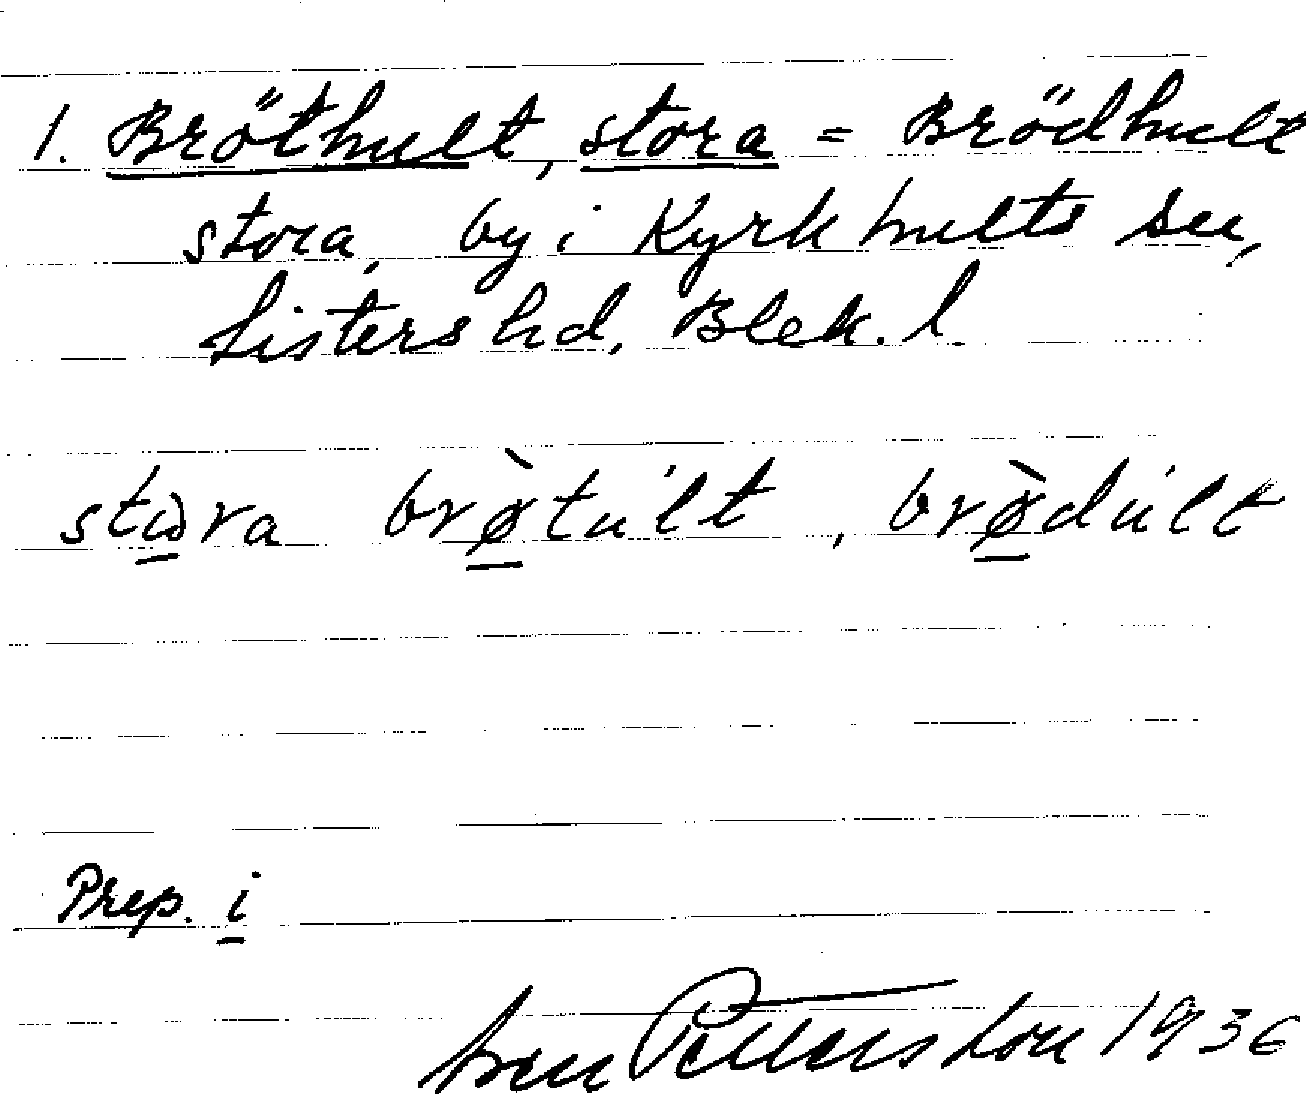 1. Bröthult, stora = Brödhult
stora, by i Kyrkhults sn,
Listers hd, Blek. l.
stωra brø̀tu'lt, brø̀du'lt
Prep. i
Sven Pettersson 1936